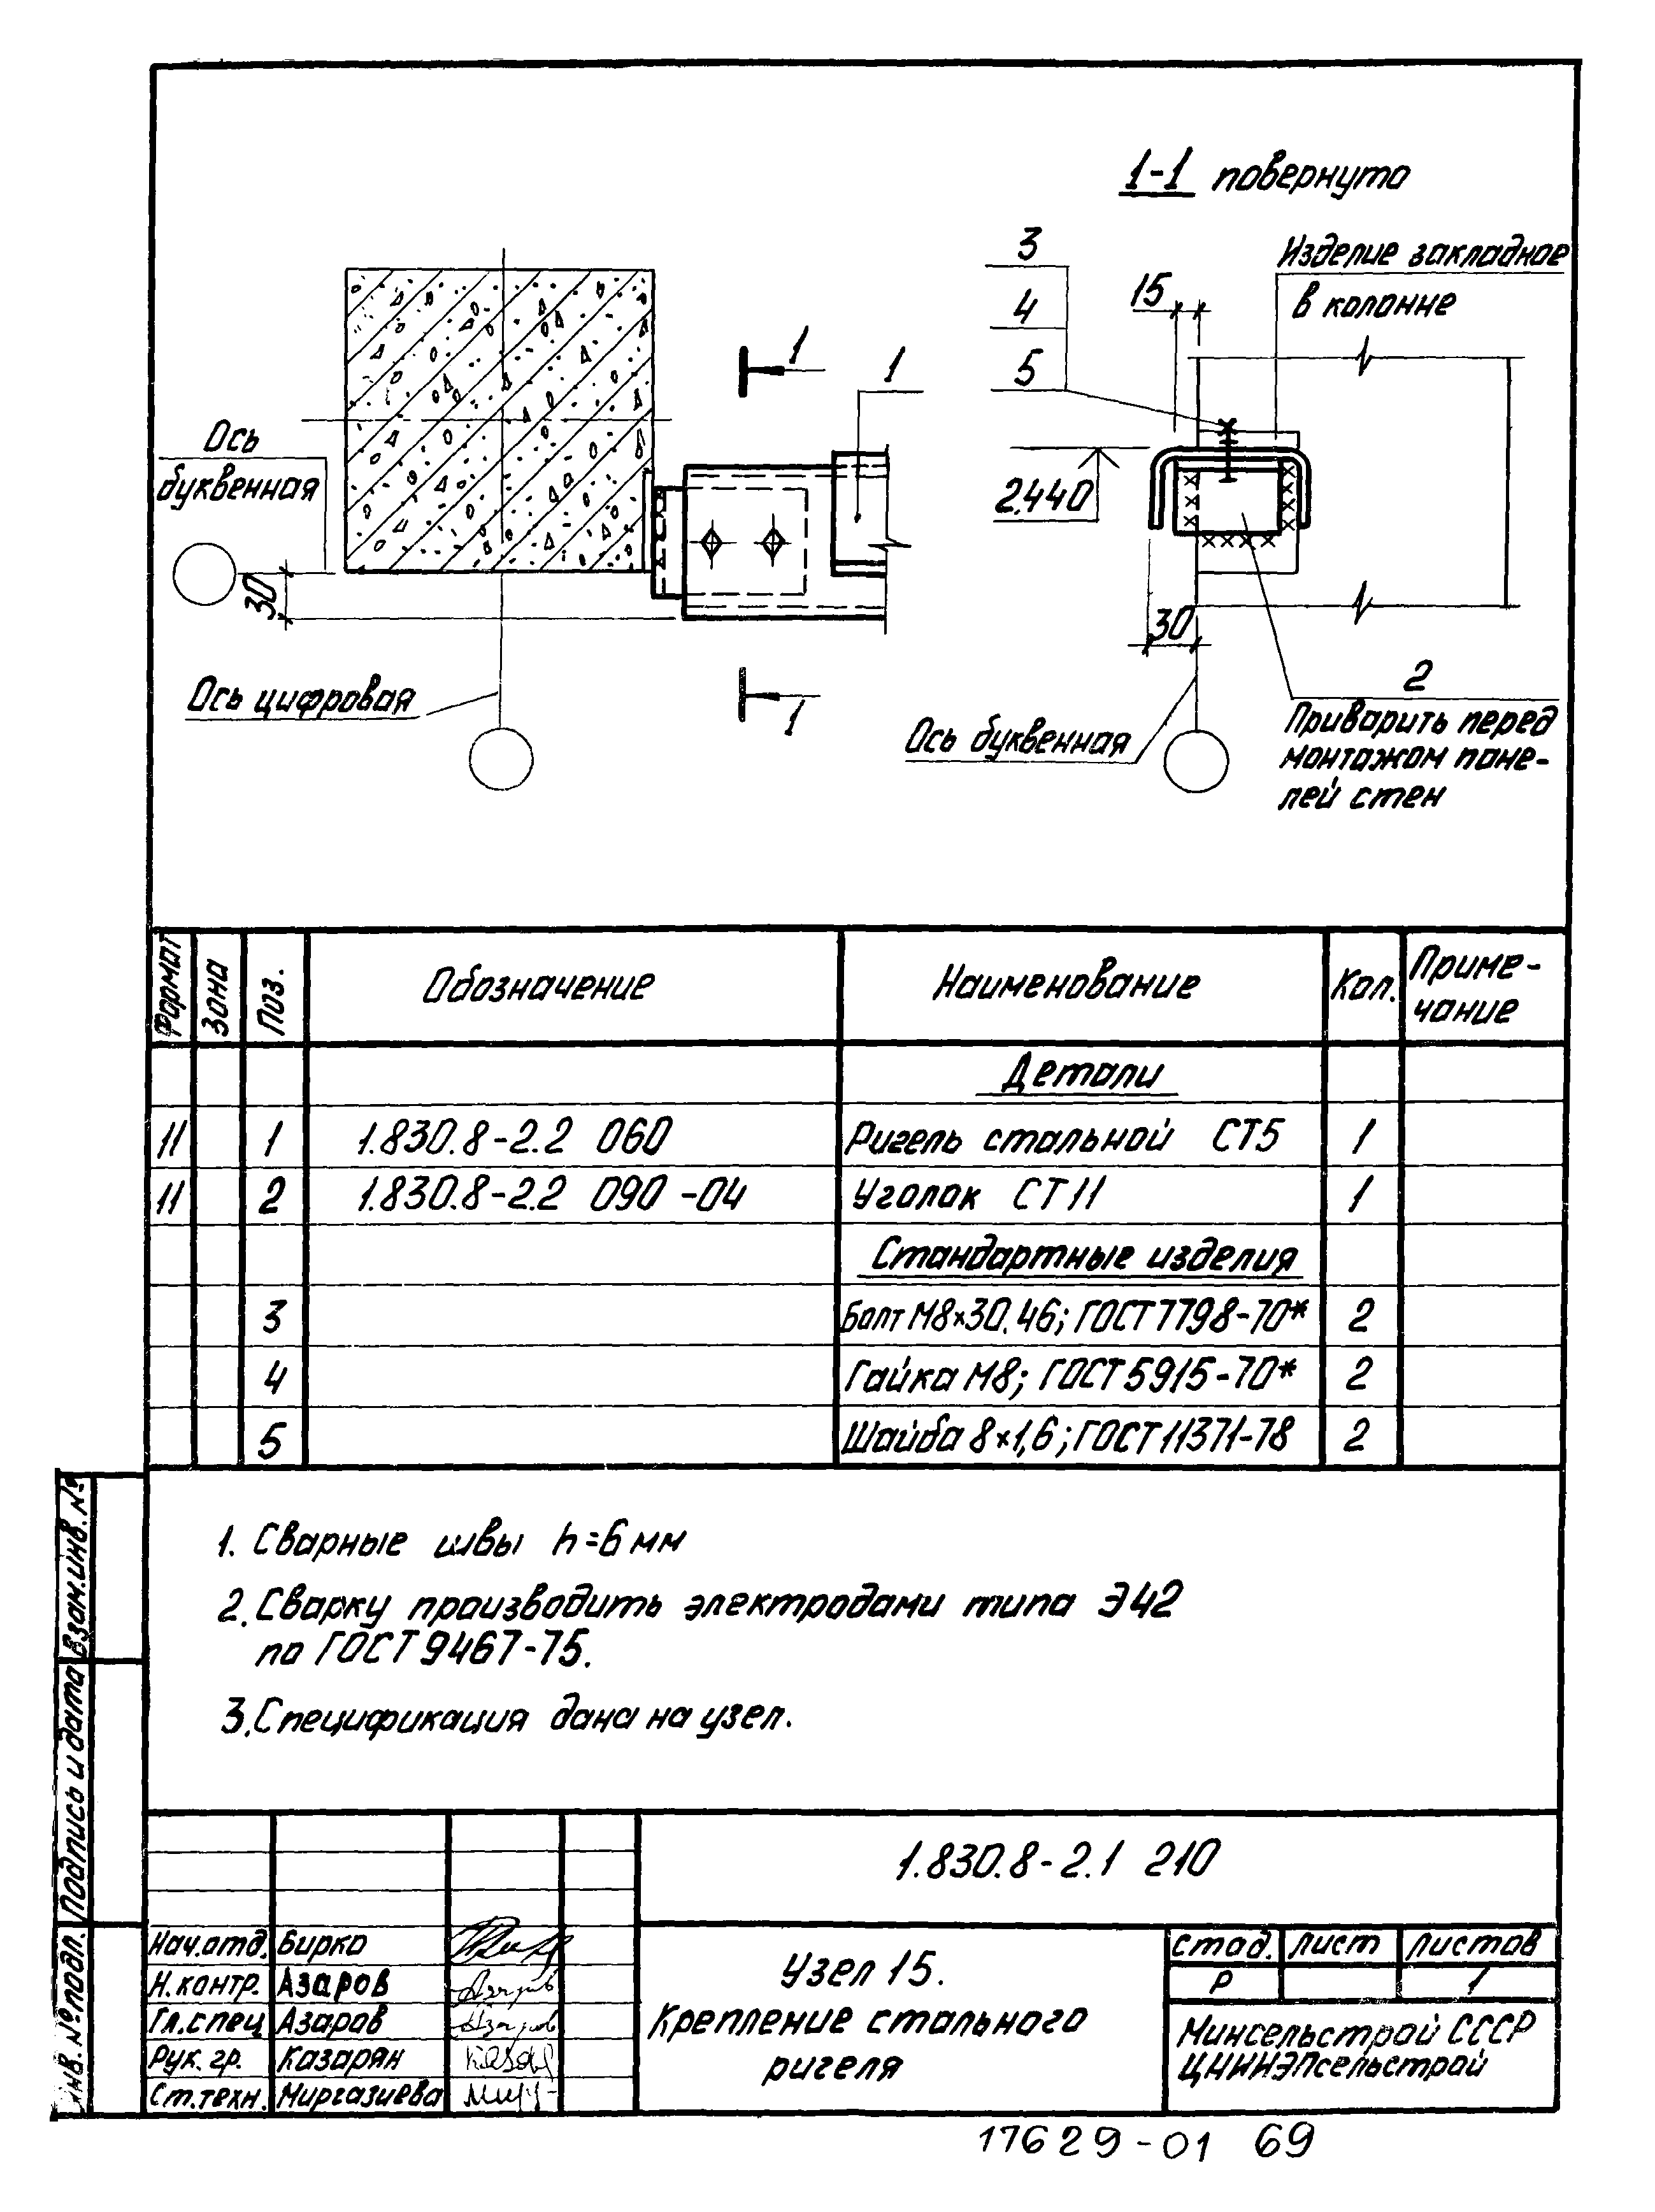 1-1 повернуто
3
4
5
15
Изделие закладное
в колонне
1
1
Ось
буквенная
30
2.440
30
2
Приварить перед
монтажом пане-
лей стен
Ось буквенная
Ось цифровая
1
Формат Зона Поз. Обозначение Наименование Кол. Приме-
чание
Детали
11 1 1.830.8-2.2 060 Ригель стальной СТ5 1
11 2 1.830.8-2.2 090-04 Уголок СТ11 1
Стандартные изделия
3 Болт М8×30.46; ГОСТ 7798-70* 2
4 Гайка М8; ГОСТ 5915-70* 2
5 Шайба 8×1,6; ГОСТ 11371-78 2
1. Сварные швы h=6 мм
2. Сварку производить электродами типа Э42
по ГОСТ 9467-75.
3. Спецификация дана на узел.
Взам.инв.№
Подпись и дата
Инв.№ подл.
1.830.8-2.1 210
Нач.отд. Бирко
Н.контр. Азаров
Гл.спец Азаров
Рук.гр. Казарян
Ст.техн. Миргазиева
Узел 15.
Крепление стального
ригеля
Стад. Лист Листов
Р 1
Минсельстрой СССР
ЦНИИЭПсельстрой
17629-01 69